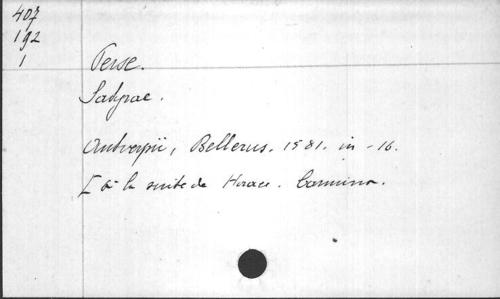 407
192
1
Perse.
Satyrae.
Antverpii, Bellerus. 1581. in-16.
[ à la suite de Horace. Carmina.